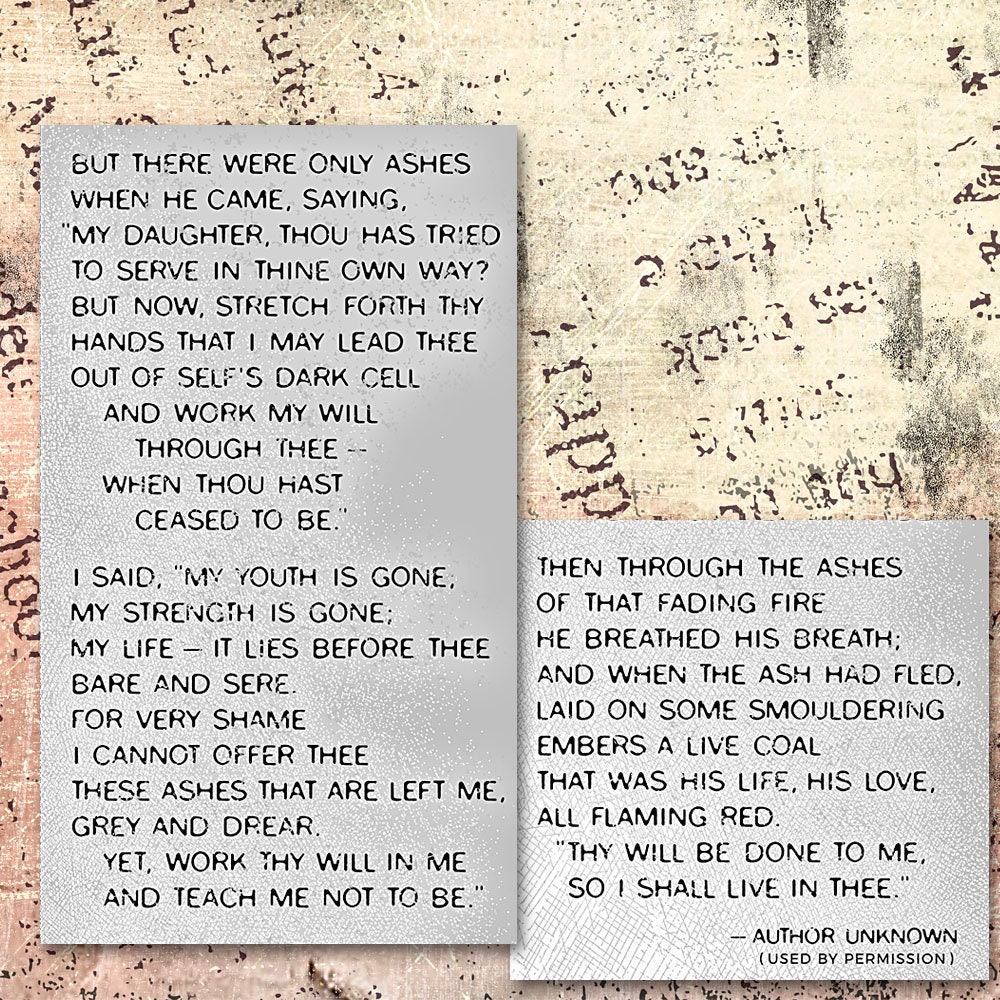 BUT THERE WERE ONLY ASHES
WHEN HE CAME, SAYING,
"MY DAUGHTER, THOU HAS TRIED
TO SERVE IN THINE OWN WAY?
BUT NOW, STRETCH FORTH THY
HANDS THAT I MAY LEAD THEE
OUT OF SELF'S DARK CELL
AND WORK MY WILL
THROUGH THEE --
WHEN THOU HAST
CEASED TO BE."
I SAID, "MY YOUTH IS GONE;
MY STRENGTH IS GONE;
MY LIFE — IT LIES BEFORE THEE
BARE AND SERE.
FOR VERY SHAME
I CANNOT OFFER THEE
THESE ASHES THAT ARE LEFT ME,
GREY AND DREAR.
YET, WORK THY WILL IN ME
AND TEACH ME NOT TO BE."
THEN THROUGH THE ASHES
OF THAT FADING FIRE
HE BREATHED HIS BREATH;
AND WHEN THE ASH HAD FLED,
LAID ON SOME SMOULDERING
EMBERS A LIVE COAL
THAT WAS HIS LIFE, HIS LOVE,
ALL FLAMING RED.
"THY WILL BE DONE TO ME,
SO I SHALL LIVE IN THEE."
— AUTHOR UNKNOWN
(USED BY PERMISSION)